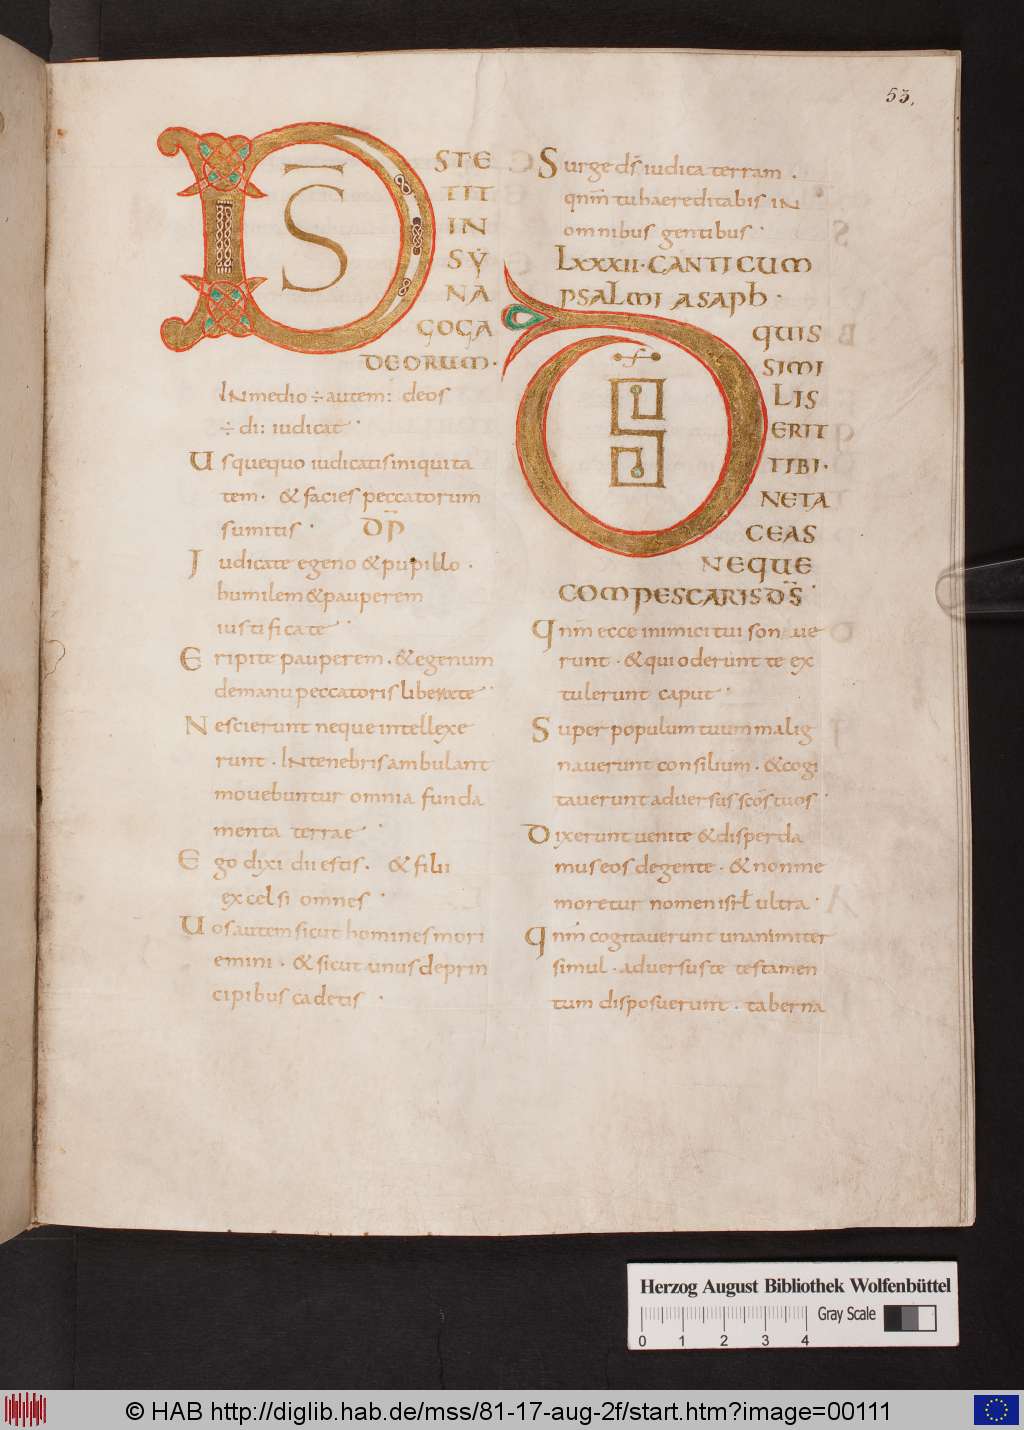 55.
D̄S STE
TIT
IN
SY
NA
GOGA
DEORUM·
INmedio ÷ autem: deos
÷ di: iudicat·
Usquequo iudicatis iniquita
tem· & facies peccatorum
sumitis· DP̄
Iudicate egeno & pupillo·
humilem & pauperem
iustificate·
Eripite pauperem· & egenum
demanu peccatoris liberate·
Nescierunt neque intellexe
runt· INtenebris ambulant
movebuntur omnia funda
menta terrae·
Ego dixi dii estis· & filii
excelsi omnes·
Uos autem sicut homines mori
emini· & sicut unus deprin
cipibus cadetis·
Surge d̄s iudica terram·
qnm̄ tu haereditabis IN
omnibus gentibus·
LXXXII· CANTICUM
PSALMI ASAPH·
D̄S QUIS
SIMI
LIS
ERIT
TIBI·
NETA
CEAS
NEQUE
COMPESCARIS D̄S·
Qnm̄ ecce inimici tui sonaue
runt· & qui oderunt te ex
tulerunt caput·
Super populum tuum malig
nauerunt consilium· & cogi
tauerunt aduersus sc̄os tuos·
Dixerunt uenite & disperda
mus eos degente· & non me
moretur nomen isrł ultra·
Qnm̄ cogitauerunt unanimiter
simul· aduersus te testamen
tum disposuerunt· taberna
Herzog August Bibliothek Wolfenbüttel
Gray Scale
0 1 2 3 4
© HAB http://diglib.hab.de/mss/81-17-aug-2f/start.htm?image=00111